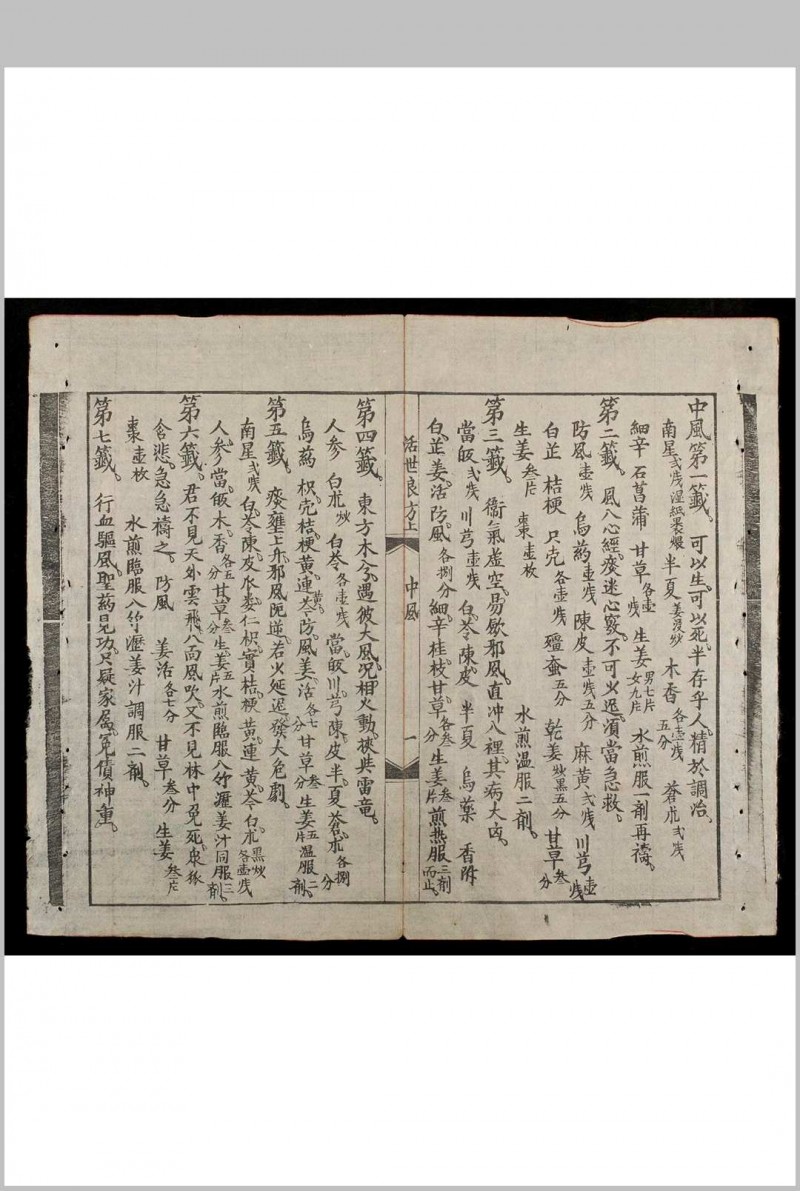 中風第一籤。可以生。可以死。半存乎人。精於調治。
南星弍戔湿紙裹煨 半夏姜湯炒 木香各壹戔五分 蒼朮弍戔
細辛 石菖蒲 甘草各壹戔 生姜男七片女九片 水煎服一劑再禱。
第二籤。風入心經。痰迷心竅。不可火迟。須當急救。
防風壹戔 烏药壹戔 陳皮壹戔五分 麻黄弍戔 川芎壹戔
白芷 桔梗 只壳各壹戔 殭蚕五分 乾姜炒黑五分 甘草叁分
生姜叁片 棗壹枚 水煎温服二劑。
第三籤。衛氣虚空。易欽邪風。直冲入裡。其病大凶。
當皈弍戔 川芎壹戔 白苓 陳皮 半夏 烏藥 香附
白芷 姜活 防風各捌分 細辛 桂枝 甘草各叁分 生姜叁片 煎熱服三劑而止。
活世良方上 中風 一
第四籤。東方木今。遇彼大風。况相火動。挾與雷竜。
人参 白朮炒 白苓各壹戔 當皈 川芎 陳皮 半夏 蒼朮各捌分
烏药 枳壳 桔梗 黄連 黄苓 防風 姜活各七分 甘草叁分 生姜五片 温服二劑。
第五籤。痰壅上升。邪風阨逆。若火延迟。發大危劇。
南星弍戔 白苓 陳皮 瓜蒌仁 枳實 桔梗 黄連 黄苓 白朮黑炒各壹戔
人参 當皈 木香各五分 甘草叁分 生姜五片 水煎臨服入竹瀝姜汁同服三劑。
第六籤。君不見天外雲飛。八面風吹。又不見林中兔死。衆狐
含悲。急急禱之。防風 姜活各七分 甘草叁分 生姜叁片
棗壹枚 水煎臨服入竹瀝姜汁調服二劑。
第七籤。行血驅風。聖药見功。只疑家属。冤債神重。